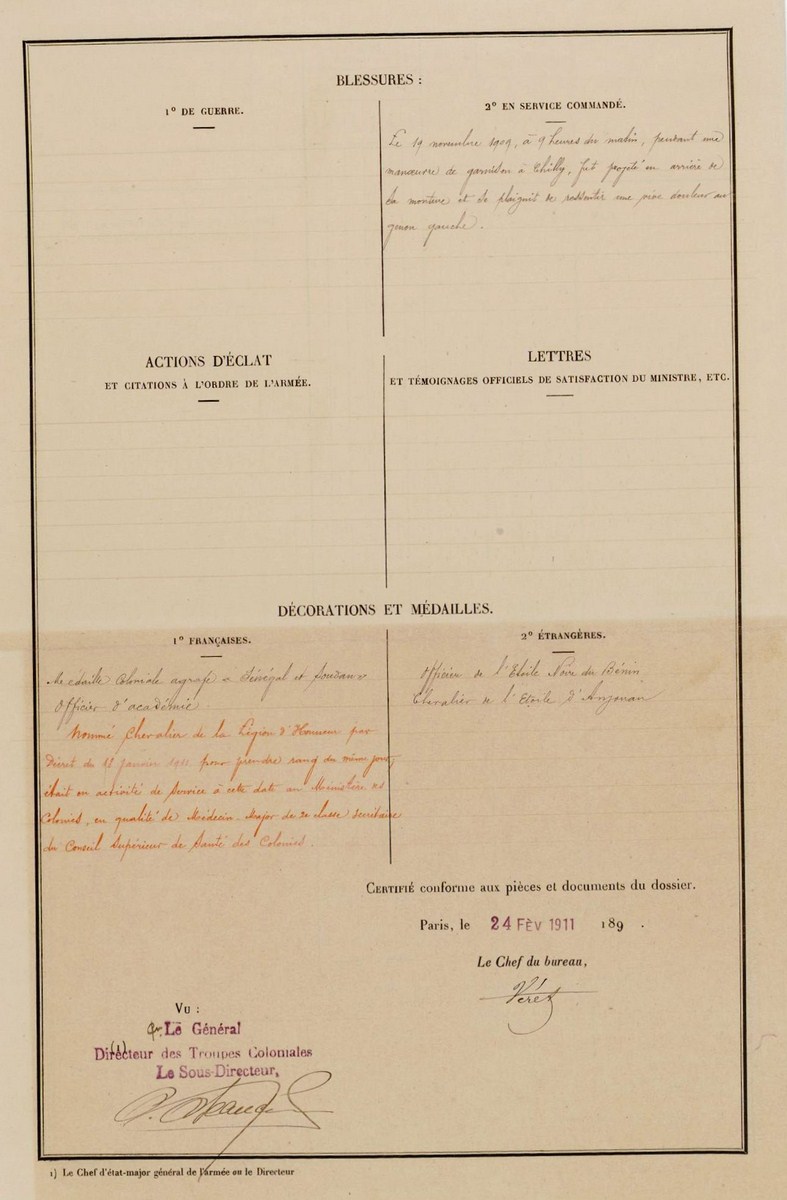 BLESSURES :
1º DE GUERRE.
2º EN SERVICE COMMANDÉ.
Le 19 novembre 1909, à 9 heures du matin, pendant une
manœuvre de garnison à Chilly, fut projeté en arrière de
sa monture et se plaignit de ressentir une vive douleur au
genou gauche.
ACTIONS D'ÉCLAT
ET CITATIONS À L'ORDRE DE L'ARMÉE.
LETTRES
ET TÉMOIGNAGES OFFICIELS DE SATISFACTION DU MINISTRE, ETC.
DÉCORATIONS ET MÉDAILLES.
1º FRANÇAISES.
Médaille Coloniale agrafe « Sénégal et Soudan »
Officier d'académie
Nommé Chevalier de la Légion d'Honneur par
Décret du 18 janvier 1911 pour prendre rang du même jour,
était en activité de Service à cette date au Ministère des
Colonies, en qualité de Médecin-Major de 2e classe secrétaire
du Conseil Supérieur de Santé des Colonies.
2º ÉTRANGÈRES.
Officier de l'Etoile Noire du Bénin
Chevalier de l'Etoile d'Anjouan
CERTIFIÉ conforme aux pièces et documents du dossier.
Paris, le 24 FÈV 1911 189 .
Le Chef du bureau,
VU :
Le Général
Directeur des Troupes Coloniales
Le Sous-Directeur,
1) Le Chef d'état-major général de l'armée ou le Directeur